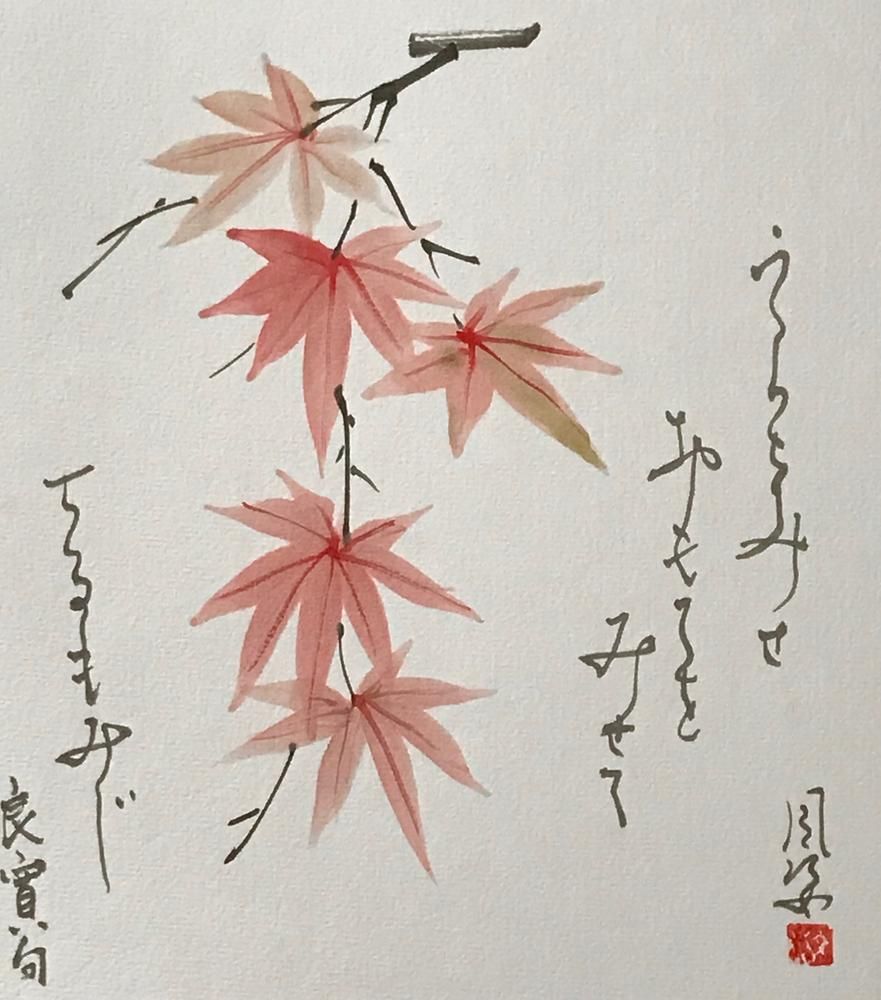 うらをみせ
おもてを
みせて
ちるもみじ
良寛句
風姿